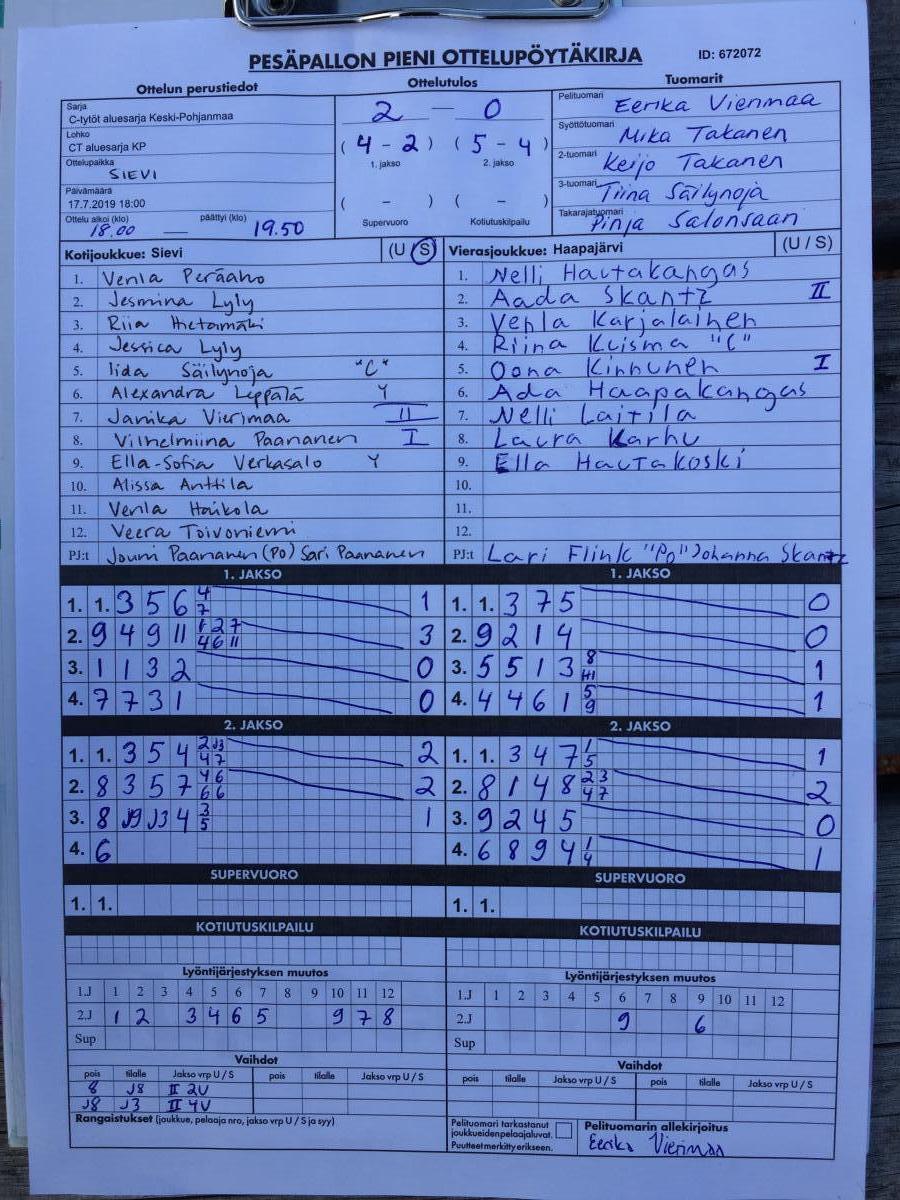 PESÄPALLON PIENI OTTELUPÖYTÄKIRJA ID: 672072
Ottelun perustiedot Ottelutulos Tuomarit
Sarja
C-tytöt aluesarja Keski-Pohjanmaa
Lohko
CT aluesarja KP
Ottelupaikka
SIEVI
Päivämäärä
17.7.2019 18:00
Ottelu alkoi (klo) päättyi (klo)
18.00 — 19.50
2 — 0
(4 - 2) (5 - 4)
1. jakso 2. jakso
( - ) ( - )
Supervuoro Kotiutuskilpailu
Pelituomari Eerika Vierimaa
Syöttötuomari Mika Takanen
2-tuomari Keijo Takanen
3-tuomari Tiina Säilynoja
Takarajatuomari Pinja Salonsaari
Kotijoukkue: Sievi (U / S)
1. Venla Peräaho
2. Jesmina Lyly
3. Riia Hietamäki
4. Jessica Lyly
5. Iida Säilynoja "C"
6. Alexandra Leppälä Y
7. Janika Vierimaa II
8. Vilhelmiina Paananen I
9. Ella-Sofia Verkasalo Y
10. Alissa Anttila
11. Venla Haikola
12. Veera Toivoniemi
PJ:t Jouni Paananen (PO) Sari Paananen
Vierasjoukkue: Haapajärvi (U / S)
1. Nelli Hautakangas
2. Aada Skantz II
3. Venla Karjalainen
4. Riina Kuisma "C"
5. Oona Kinnunen I
6. Ada Haapakangas
7. Nelli Laitila
8. Laura Karhu
9. Ella Hautakoski
10.
11.
12.
PJ:t Lari Flink "PO" Johanna Skantz
1. JAKSO
1. 1. 3 5 6 4 7 1
2. 9 4 9 11 1 2 7 4 6 11 3
3. 1 1 3 2 0
4. 7 7 3 1 0
1. JAKSO
1. 1. 3 7 5 0
2. 9 2 1 4 0
3. 5 5 1 3 8 1
4. 4 4 6 1 5 9 1
2. JAKSO
1. 1. 3 5 4 2 J3 4 7 2
2. 8 3 5 7 4 6 6 6 2
3. 8 J9 J3 4 3 5 1
4. 6
2. JAKSO
1. 1. 3 4 7 1 5 1
2. 8 1 4 8 2 3 4 7 2
3. 9 2 4 5 0
4. 6 8 9 4 1 4 1
SUPERVUORO SUPERVUORO
1. 1. 1. 1.
KOTIUTUSKILPAILU KOTIUTUSKILPAILU
Lyöntijärjestyksen muutos
1.J 1 2 3 4 5 6 7 8 9 10 11 12
2.J 1 2 3 4 6 5 9 7 8
Sup
Lyöntijärjestyksen muutos
1.J 1 2 3 4 5 6 7 8 9 10 11 12
2.J 9 6
Sup
Vaihdot
pois tilalle Jakso vrp U / S pois tilalle Jakso vrp U / S
8 J8 II 2U
J8 J3 II 4U
Rangaistukset (joukkue, pelaaja nro, jakso vrp U / S ja syy)
Vaihdot
pois tilalle Jakso vrp U / S pois tilalle Jakso vrp U / S
Pelituomari tarkastanut
joukkueidenpelaajaluvat.
Puutteet merkitty erikseen.
Pelituomarin allekirjoitus
Eerika Vierimaa